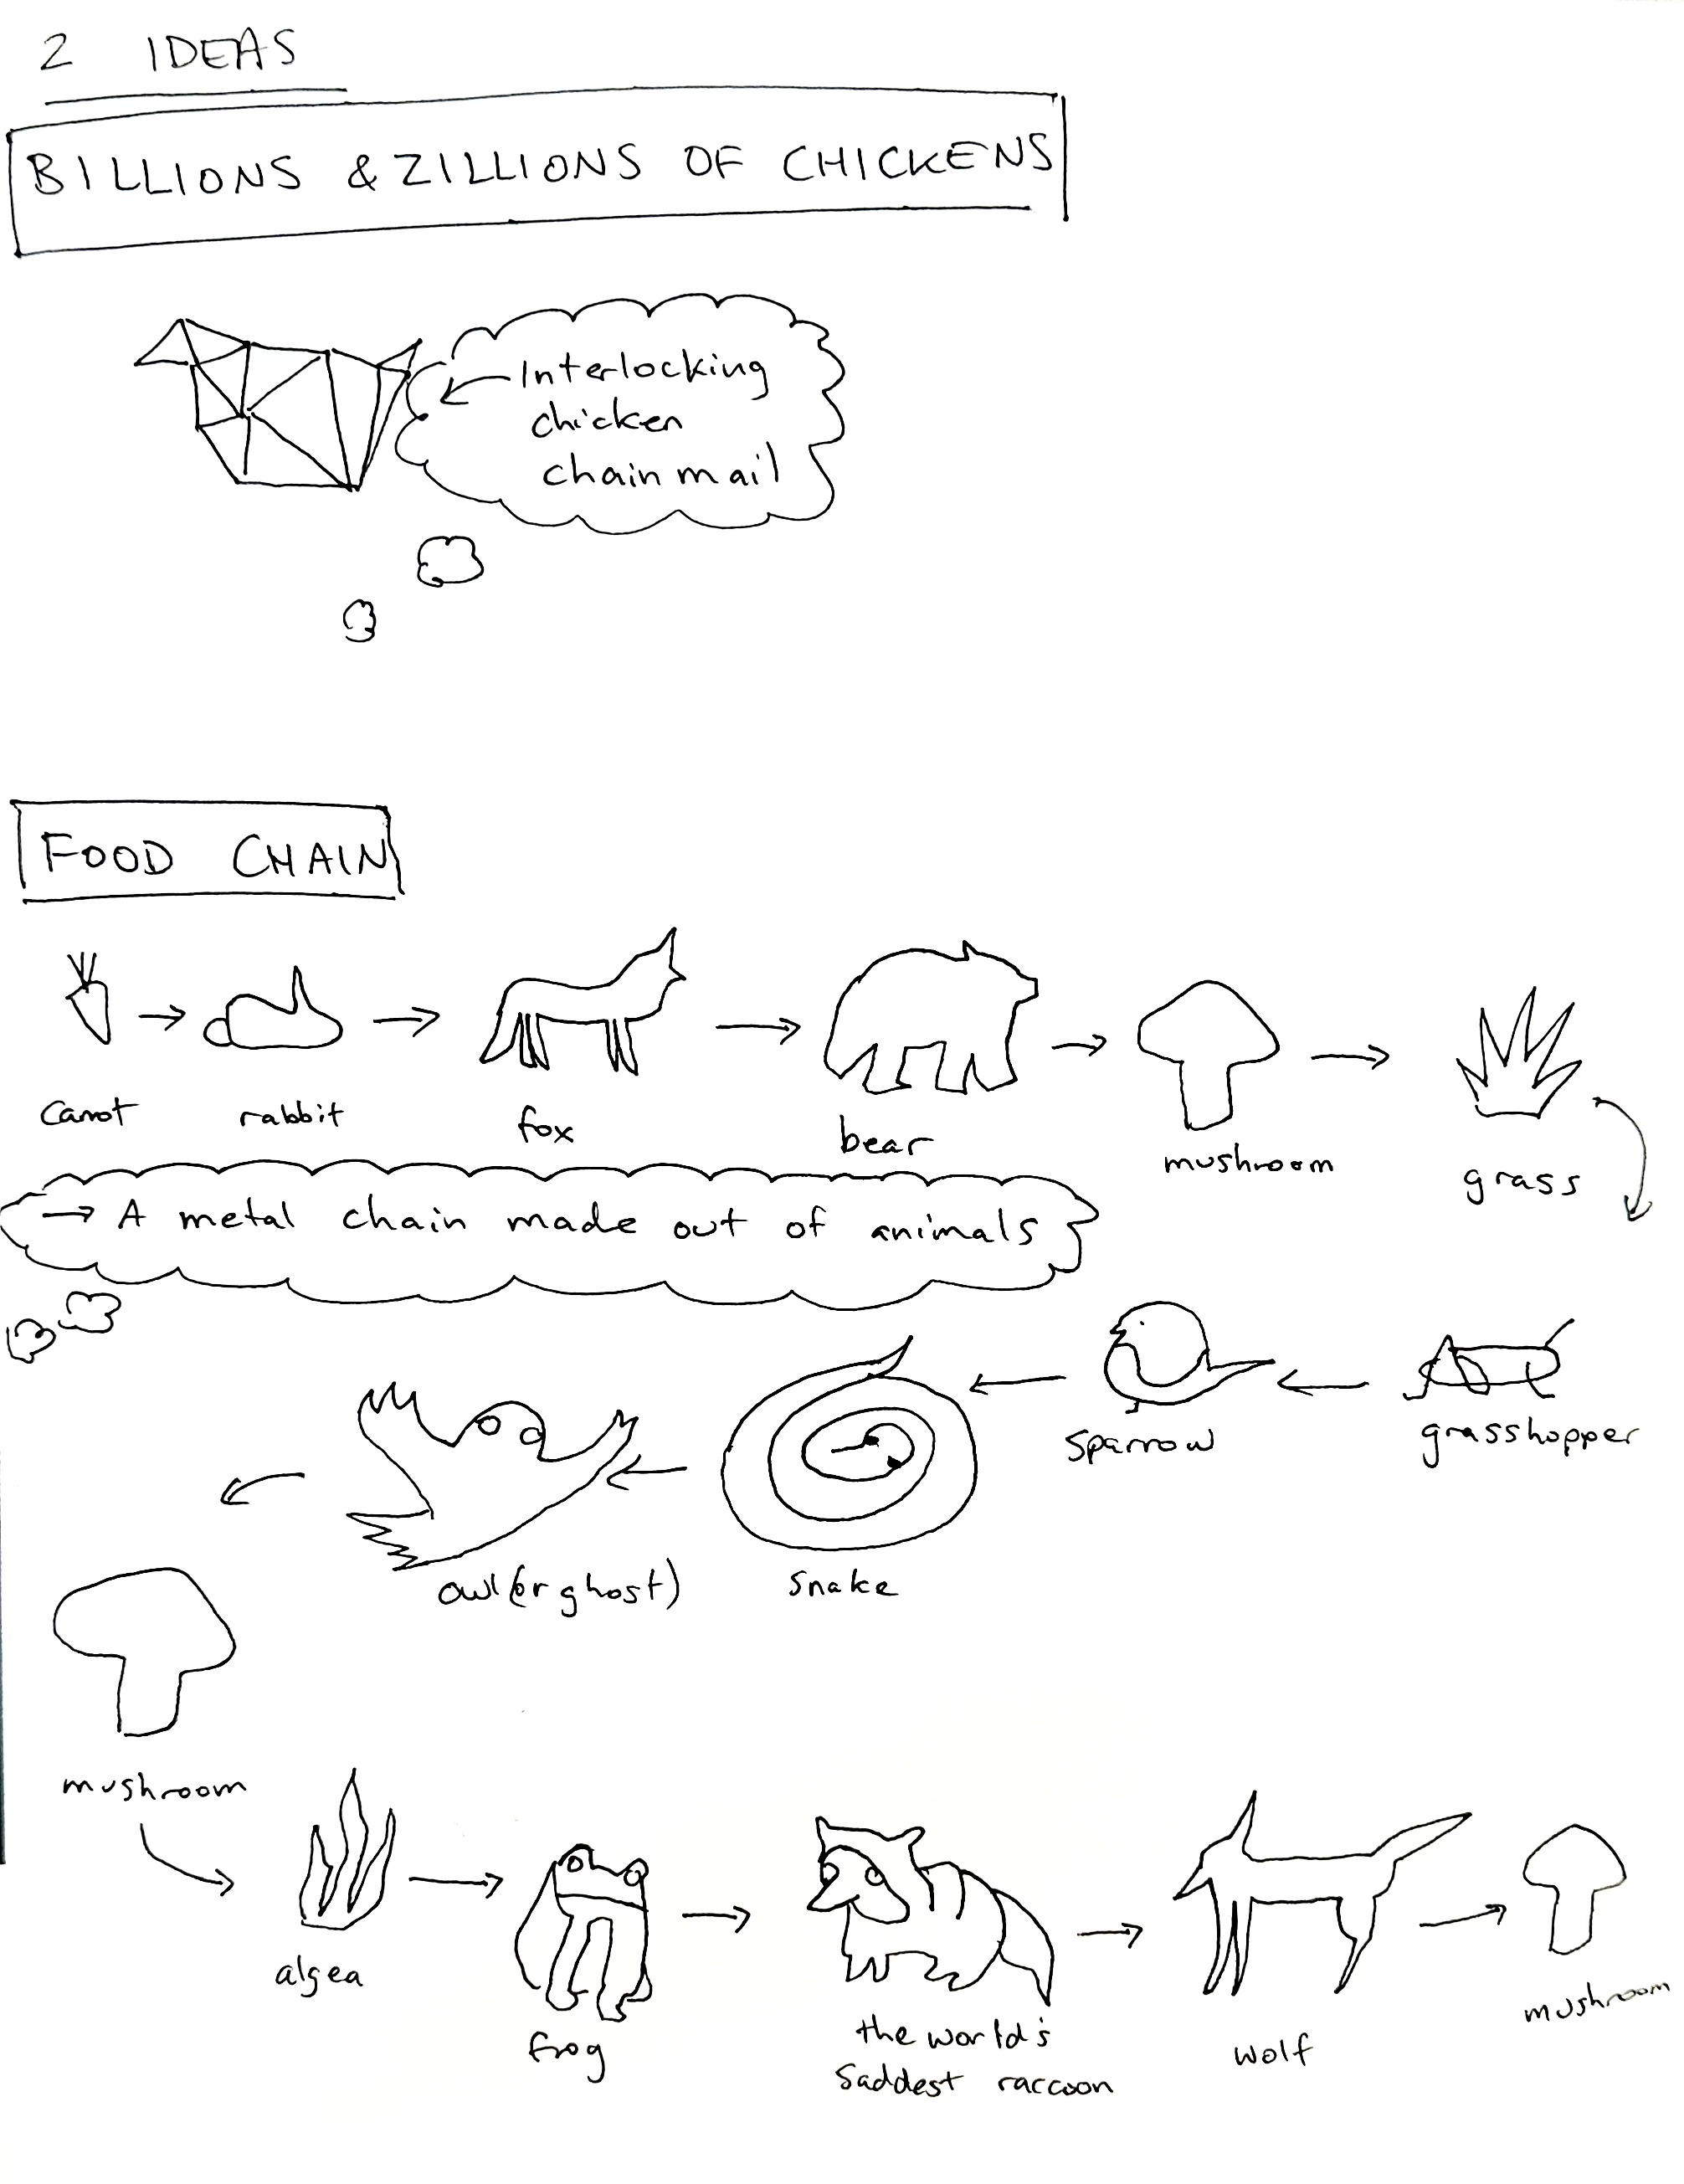 2 IDEAS
BILLIONS & ZILLIONS OF CHICKENS
Interlocking
chicken
chain mail
FOOD CHAIN
carrot
rabbit
fox
bear
mushroom
grass
→ A metal chain made out of animals
grasshopper
sparrow
snake
owl (or ghost)
mushroom
algea
frog
the world's
saddest raccoon
wolf
mushroom